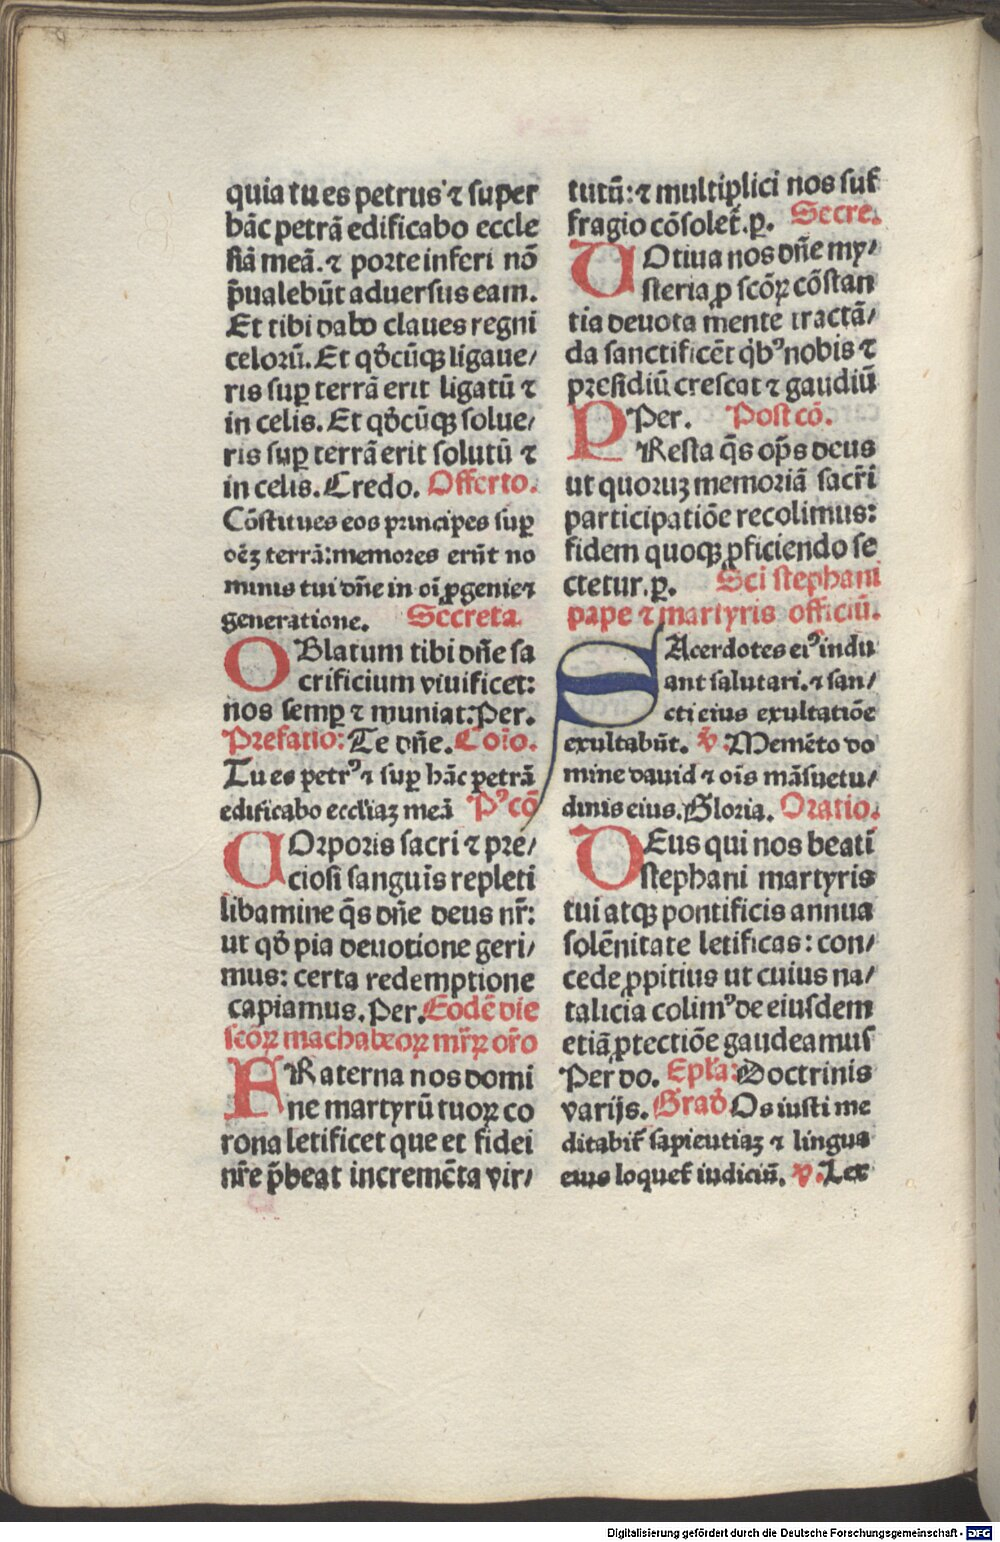 quia tu es petrus ⁊ super
hāc petrā edificabo eccle
siā meā. ⁊ porte inferi nō
p̄ualebūt aduersus eam.
Et tibi dabo claues regni
celorū. Et qd̓cūqꝫ ligaue/
ris suꝑ terrā erit ligatū ⁊
in celis. Et qd̓cūqꝫ solue/
ris suꝑ terrā erit solutū ⁊
in celis. Credo. Offerto.
Cōstitues eos principes suꝑ
oēꝫ terrā: memores erūt no
minis tui dn̄e in oī ꝓgenie ⁊
generatione. Secreta.
OBlatum tibi dn̄e sa
crificium viuificet:
nos sempꝑ ⁊ muniat: Per.
Prefatio: Te dn̄e. Coīo.
Tu es petrꝰ ⁊ suꝑ hāc petrā
edificabo eccl̄iaꝫ meā Pꝰcō
COrporis sacri ⁊ pre/
ciosi sanguīs repleti
libamine q̄s dn̄e deus nr̄:
ut qd̓ pia deuotione geri/
mus: certa redemptione
capiamus. Per. Eodē die
scōꝝ machabeoꝝ mr̄ꝝ or̄o
FRaterna nos domi
ne martyrū tuoꝝ co
rona letificet que et fidei
nr̄e p̄beat incremēta vir/
tutū: ⁊ multiplici nos suf
fragio cōsolet̄. ꝑ. Secre.
UOtiua nos dn̄e my/
steria ꝓ scōꝝ cōstan
tia deuota mente tractā/
da sanctificēt qb̓ꝰ nobis ⁊
presidiū crescat ⁊ gaudiū
Per. Post cō.
PResta q̄s op̄s deus
ut quoruꝫ memoriā sacr̄i
participatiōe recolimus:
fidem quoqꝫ ꝓficiendo se
ctetur. ꝑ. Sci stephani
pape ⁊ martyris officiū.
SAcerdotes eiꝰ indu
ant salutari. ⁊ san/
cti eius exultatiōe
exultabūt. v̄. Memēto do
mine dauid ⁊ oīs māsuetu/
dinis eius. Gloria. Oratio.
DEus qui nos beati
stephani martyris
tui atqꝫ pontificis annua
solēnitate letificas: con/
cede ꝓpitius ut cuius na/
talicia colimꝰ de eiusdem
etiā ꝓtectiōe gaudeamus
Per do. Epl̄a: Doctrinis
varijs. Grad̓ Os iusti me
ditabit̄ sapientiaꝫ ⁊ lingua
eius loquet̄ iudiciū. v̄. Lex